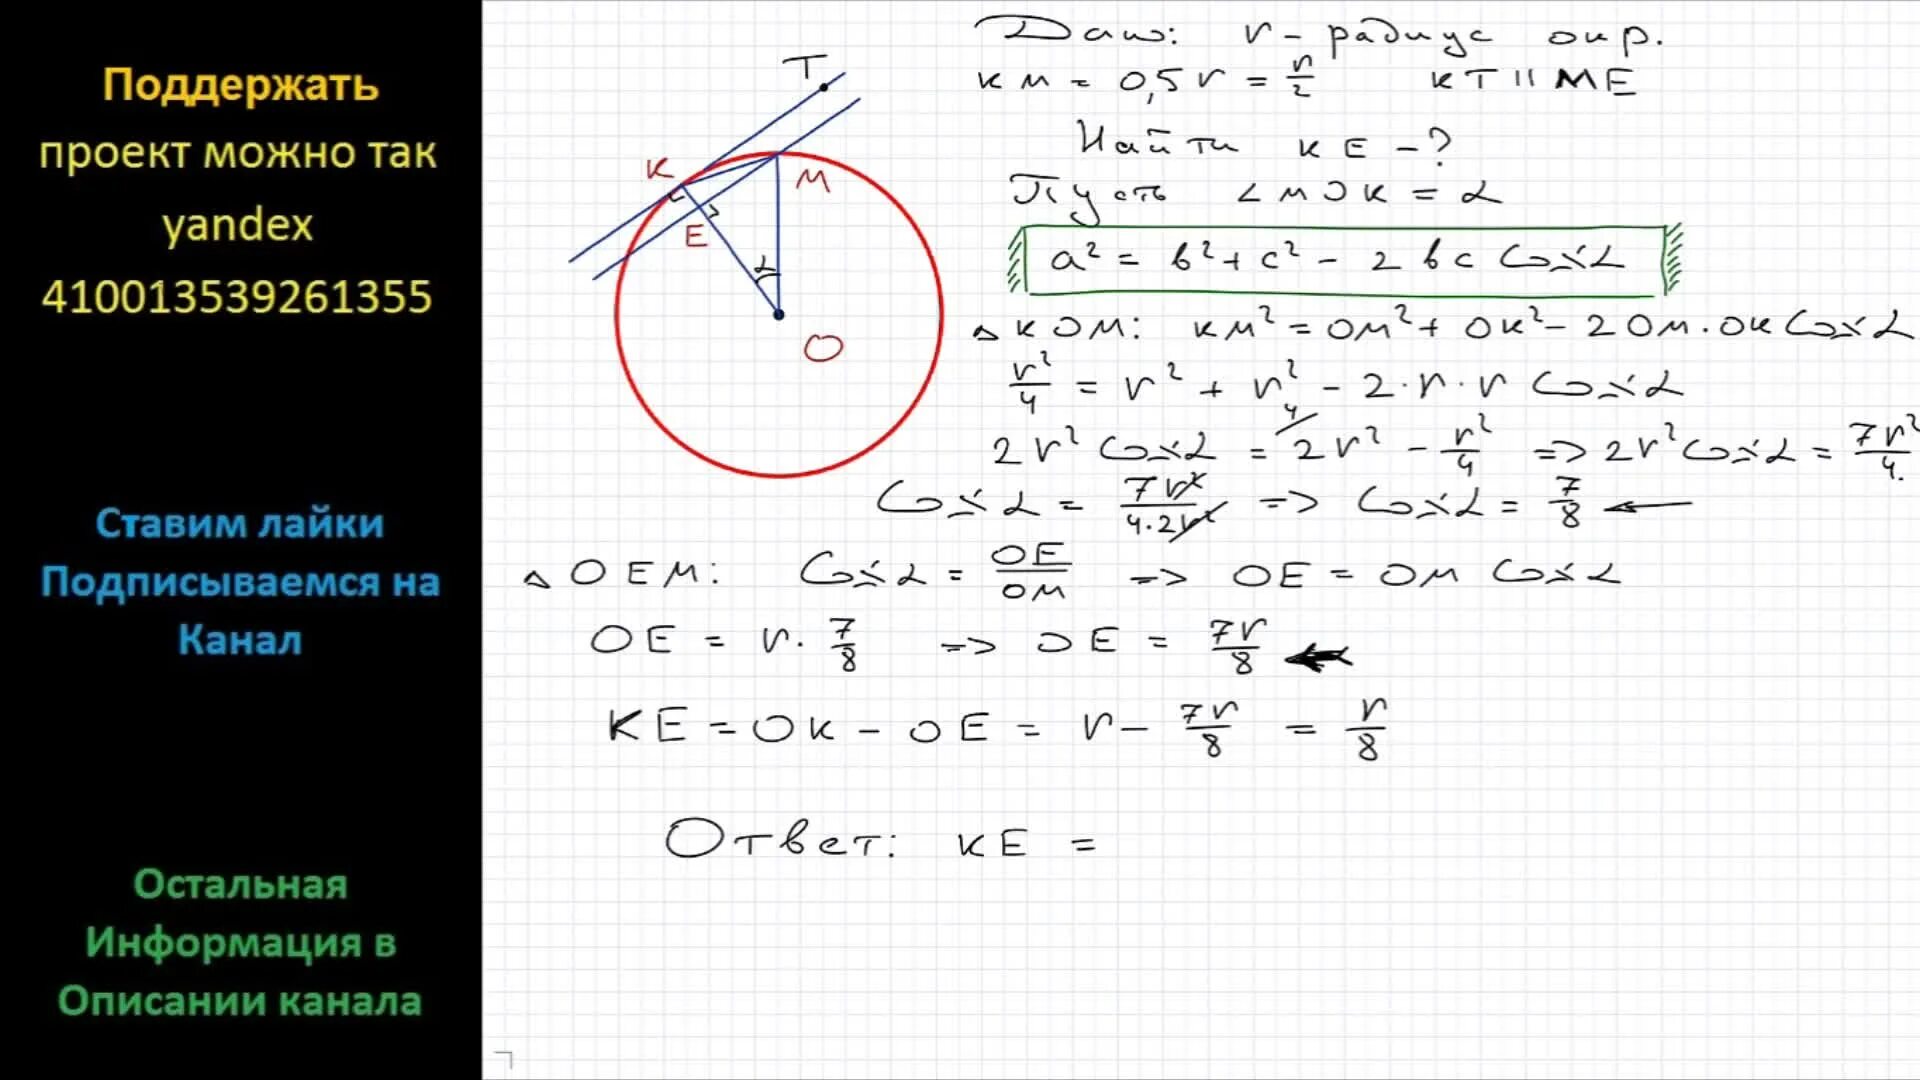 Поддержать
проект можно так
yandex
410013539261355
Ставим лайки
Подписываемся на
Канал
Остальная
Информация в
Описании канала
T
K
M
E
α
O
Дано: r - радиус окр.
KM = 0,5r = r/2 KT || ME
Найти KE - ?
Пусть ∠MOK = α
a² = b² + c² - 2bc Cos α
△KOM: KM² = OM² + OK² - 2OM·OK Cos α
r²/4 = r² + r² - 2·r·r Cos α
2r² Cos α = 2r² - r²/4 => 2r² Cos α = 7r²/4
Cos α = 7r²/4·2r² => Cos α = 7/8
△OEM: Cos α = OE/OM => OE = OM Cos α
OE = r·7/8 => OE = 7r/8
KE = OK - OE = r - 7r/8 = r/8
Ответ: KE =